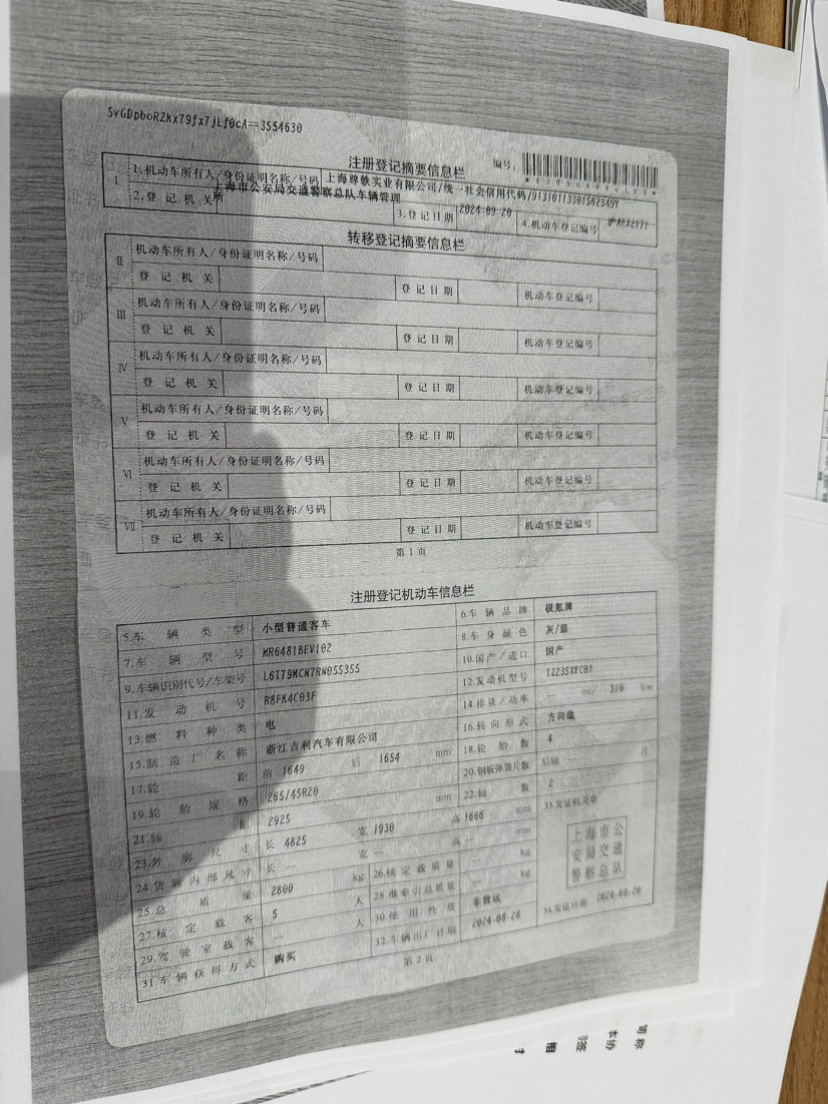 5vGDpboRZKx79fx7jLf0cA==3554630
注册登记摘要信息栏
编号:
I
1.机动车所有人/身份证明名称/号码 上海尊轶实业有限公司/统一社会信用代码/
2.登记机关 上海市公安局交通警察总队车辆管理所 3.登记日期 2024-09-20 4.机动车登记编号
转移登记摘要信息栏
II 机动车所有人/身份证明名称/号码
登记机关 登记日期 机动车登记编号
III 机动车所有人/身份证明名称/号码
登记机关 登记日期 机动车登记编号
IV 机动车所有人/身份证明名称/号码
登记机关 登记日期 机动车登记编号
V 机动车所有人/身份证明名称/号码
登记机关 登记日期 机动车登记编号
VI 机动车所有人/身份证明名称/号码
登记机关 登记日期 机动车登记编号
VII 机动车所有人/身份证明名称/号码
登记机关 登记日期 机动车登记编号
第1页
注册登记机动车信息栏
5.车辆类型 小型普通客车 6.车辆品牌 极氪牌
7.车辆型号 MR6481BEV102 8.车身颜色 灰/蓝
9.车辆识别代号/车架号 L6T79MCN7RN055355 10.国产/进口 国产
11.发动机号 R8FK4C03F 12.发动机型号
13.燃料种类 电 14.排量/功率 -- ml/ 310 kw
15.制造厂名称 浙江吉利汽车有限公司 16.转向形式 方向盘
17.轮距 前 1649 后 1654 mm 18.轮胎数 4
19.轮胎规格 265/45R20 20.钢板弹簧片数 后轴 -- 片
21.轴距 2925 mm 22.轴数 2
23.外廓尺寸 长 4825 宽 1930 高 1666 mm 33.发证机关章
24.货厢内部尺寸 长 -- 宽 -- 高 -- mm
25.总质量 2800 kg 26.核定载质量 -- kg
27.核定载客 5 人 28.准牵引总质量 -- kg
29.驾驶室载客 -- 人 30.使用性质 非营运
31.车辆获得方式 购买 32.车辆出厂日期 2024-08-28
上海市公
安局交通
警察总队
34.发证日期 2024-09-20
第2页